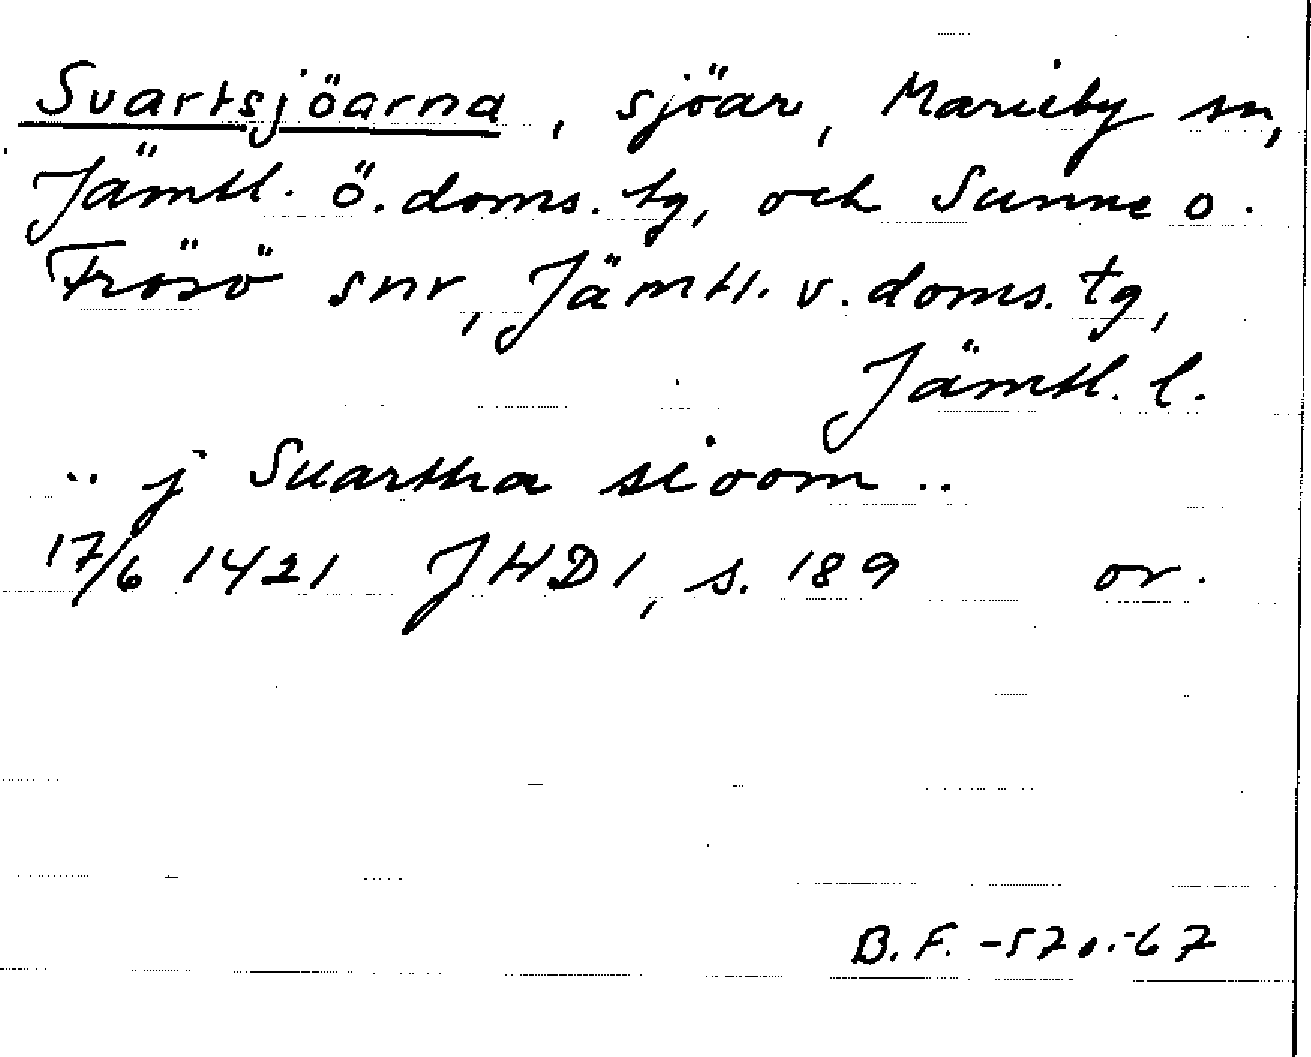 Svartsjöarna, sjöar, Marieby sn,
Jämtl. ö. doms. tg, och Sunne o.
Frösö snr, Jämtl. v. doms. tg,
Jämtl. l.
.. j Suartha sioom ..
17/6 1421 JHD1, s. 189 or.
B.F. -57 o. -67